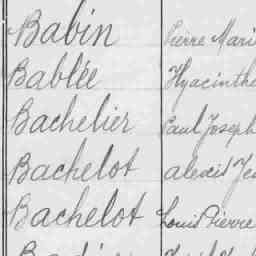 Babin Pierre Mari
Bablée Hyacinthe
Bachelier Paul Joseph
Bachelot alexis Je
Bachelot Louis Pierre